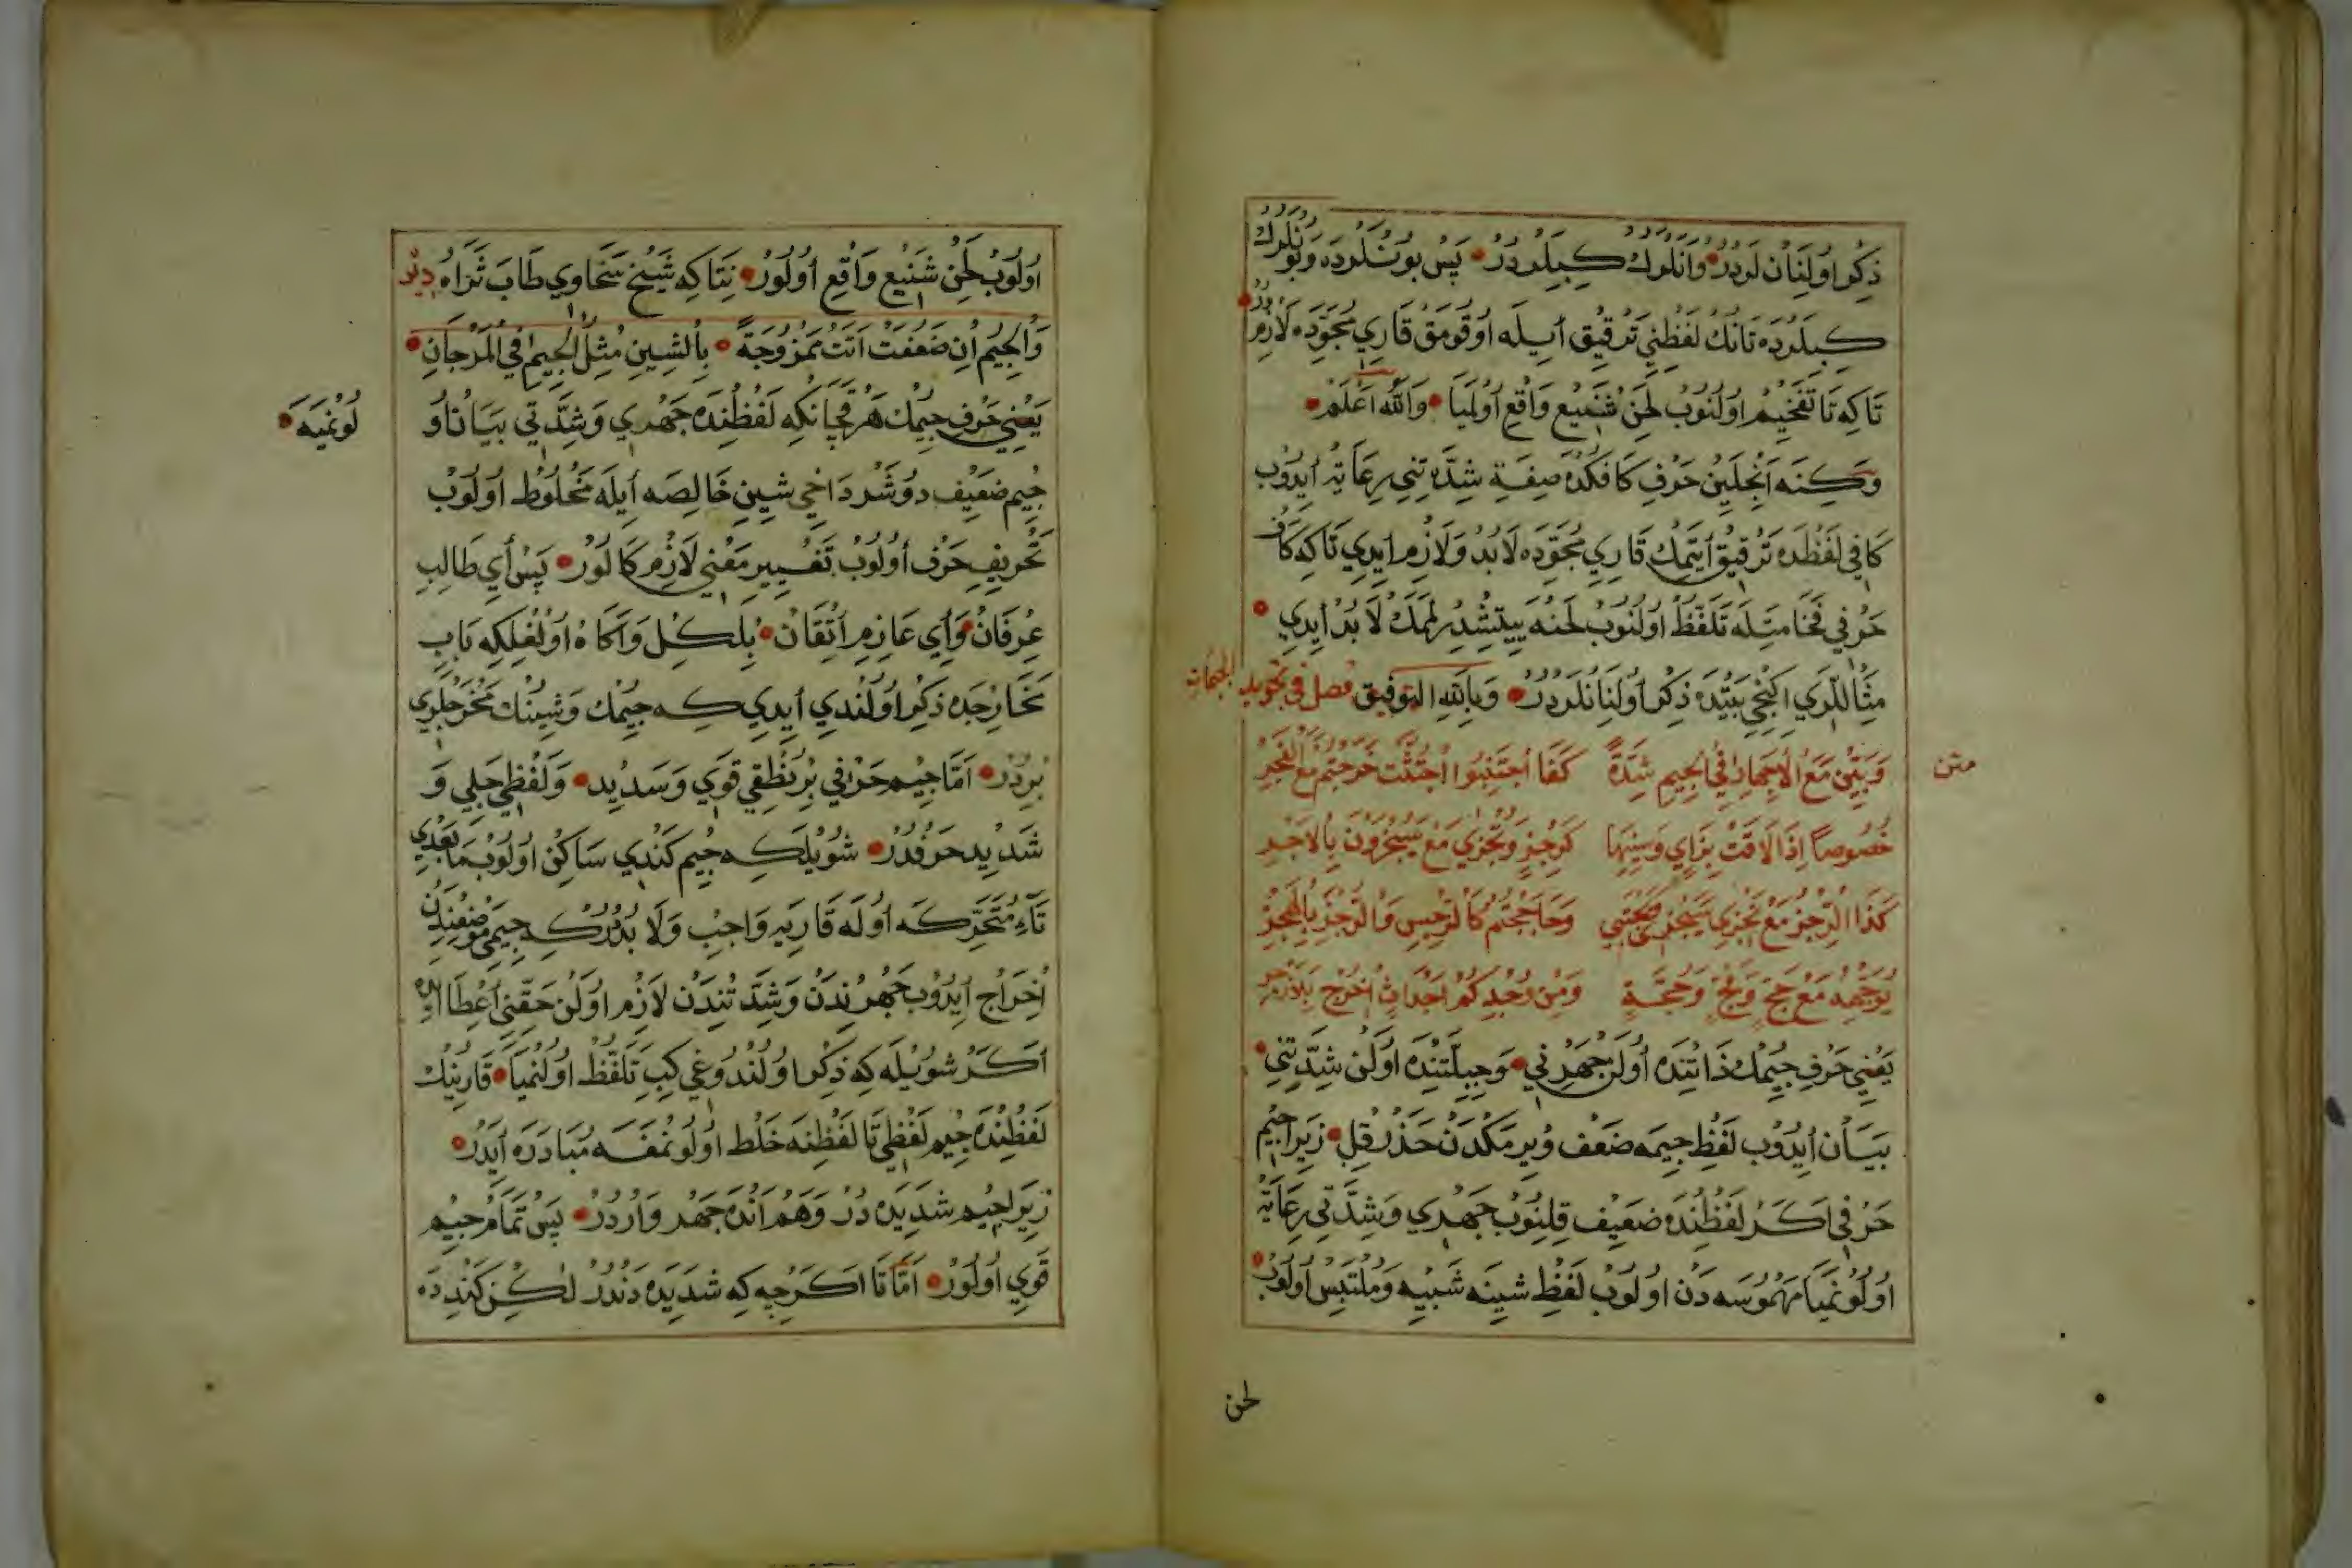 ذِكْر اوُلِنَان لَردِرُ وَانَلَرُكْ كِبِيلَردِرُ پَسْ بُونْلَردَه وَبُونْلَرُكْ
كِبِيلَردَه تَانُكْ لَفْظِنِي تَرْقِيق اَيلَه اوُقُومَقْ قَارِي مُجَوِّدَه لَازِمْ دُرْ
تَاكِه تَا تَفْخِيمْ اوُلُنُوبْ لَحْنِ شَنِيع وَاقِع اوُلْمَيَا وَاللّٰهُ اَعْلَمْ
وَكِنَه اَنْجِلَيِنْ حَرْفِ كَافكْدَه صِفَةِ شِدَّتِنِي رِعَايَة اَيدُوبْ
كَافِي لَفْظَدَه تَرْقِيق اَيتْمَكْ قَارِي مُجَوِّدَه لَابُدْ وَلَازِمْ اَيدِي تَاكِه كَافْ
حَرْفِي فَخَامَتِلَه تَلَفُّظْ اوُلُنُوبْ لَحْنَه يِيتِشْدِرِلْمَمَكْ لَابُدْ اَيدِي
مِثَاللَرِي اِكِنْجِي بَيْتْدَه ذِكْر اوُلِنَانْلَردِرُ وَبِاللّٰهِ التَّوْفِيق فصل في تجويد الجيمات
متن
وَبَيِّنْ مَعَ الْاِجْهَارِ فِي الْجِيمِ شِدَّةً كَفَا اجْتَنِبُوا اجْتُثَّتْ خَرَجْتُمْ مَعَ الْفَجْرِ
خُصُوصاً اِذَا لَاقَتْ بِزَايٍ وَسِينِهَا كَرِجْزٍ وَتُجْزِي مَعْ يُسْجَرُونَ بِالْاَجْرِ
كَذَا الرِّجْزُ مَعْ نَجْزِي سَيُجْزٰى وَحَاجَجْتُمْ كَالرِّجْسِ وَالرِّجْزِ بِالْهَجْرِ
يُوَجِّهْهُ مَعْ حَجَّ وَلُجٍّ وَحُجَّةٍ وَمِنْ وُجْدِكُمْ اَجْدَاثِ اَخْرَجَ
يَعْنِي حَرْفِ جِيمُكْ ذَاتِنْدَه اوُلَنْ جَهْرِنِي وَجِبِلَّتِنْدَه اوُلَنْ شِدَّتِنِي
بَيَانْ اَيدُوبْ لَفْظِ جِيمَه ضَعْف وِيرمَكْدَنْ حَذَرْ قِلْ زِيرَا جِيمْ
حَرْفِي اَكَرْ لَفْظِنْدَه ضَعِيف قِلِنُوبْ جَهْرِي وَشِدَّتِي رِعَايَة
اوُلُونْمَيَا مَهْمُوسَه دَنْ اوُلُوبْ لَفْظِ شِينَه شَبِيه وَمُلْتَبِسْ اوُلُوبْ
لحن
اوُلُوبْ لَحْنِ شَنِيع وَاقِع اوُلُورْ نِتَاكِه شَيْخ سَخَاوِي طَابَ ثَرَاهُ دِيرْ
وَالْجِيمُ اِنْ ضَعُفَتْ اَتَتْ مَمْزُوجَةً بِالشِّينِ مِثْلُ الْجِيمِ فِي الْمَرْجَانِ
يَعْنِي حَرْفِ جِيمُكْ هَرْ قَچَانكِه لَفْظِنْدَه جَهْرِي وَشِدَّتِي بَيَانْ اوُ
لُونْمَيَه
جِيم ضَعِيف دوُشَر دَاخِي شِينِ خَالِصَه اَيلَه مَخْلُوطْ اوُلُوبْ
تَحْرِيفِ حَرْف اوُلُوبْ تَغْيِيرِ مَعْنِي لَازِمْ كَالُورْ پَسْ اَيْ طَالِبِ
عِرْفَانْ وَاَيْ عَازِمِ اَتْقَانْ بِلْكِلْ وَآكَاهْ اوُلْغِلكِه بَابِ
مَخَارِجدَه ذِكْر اوُلُنْدِي اَيدِي كِه جِيمُكْ وَشِينُكْ مَخْرَجلَرِي
بِردُرْ اَمَّا جِيم حَرْفِي بِرْ نُطْقِي قَوِي وَسَدِيد وَلَفْظِي جَلِي وَ
شَدِيد حَرْفدُرْ شُويْلَكِه جِيم كَنْدِي سَاكِنْ اوُلُوبْ مَابَعْدِي
تَاءِ مُتَحَرِّكَه اوُلَه قَارِيَه وَاجِبْ وَلَابُدْدُرْكِه جِيمِي مَوْضِعِنْدِنْ
اَخْرَاج اَيدُوبْ جَهْرِنْدَنْ وَشِدَّتِنْدَنْ لَازِمْ اوُلَنْ حَقِّنِي اَعْطَا اَيدَه
اَكَرْ شُويْلَه كِه ذِكْر اوُلُنْدُوغِي كِبِي تَلَفُّظْ اوُلُنْمَيَا قَارِينُكْ
لَفْظِنْدَه جِيم لَفْظِي تَا لَفْظِنَه خَلْط اوُلُونْمَغَه مُبَادَرَه اَيدَرْ
زِيرَا جِيم شَدِيدَه دُرْ وَهَمْ اَنْدَه جَهْر وَارْدُرْ پَسْ تَمَام جِيم
قَوِي اوُلُورْ اَمَّا تَا اَكَرْجِه كِه شَدِيدَه دَنْدُرْ لٰكِنْ كَنْدِدَه